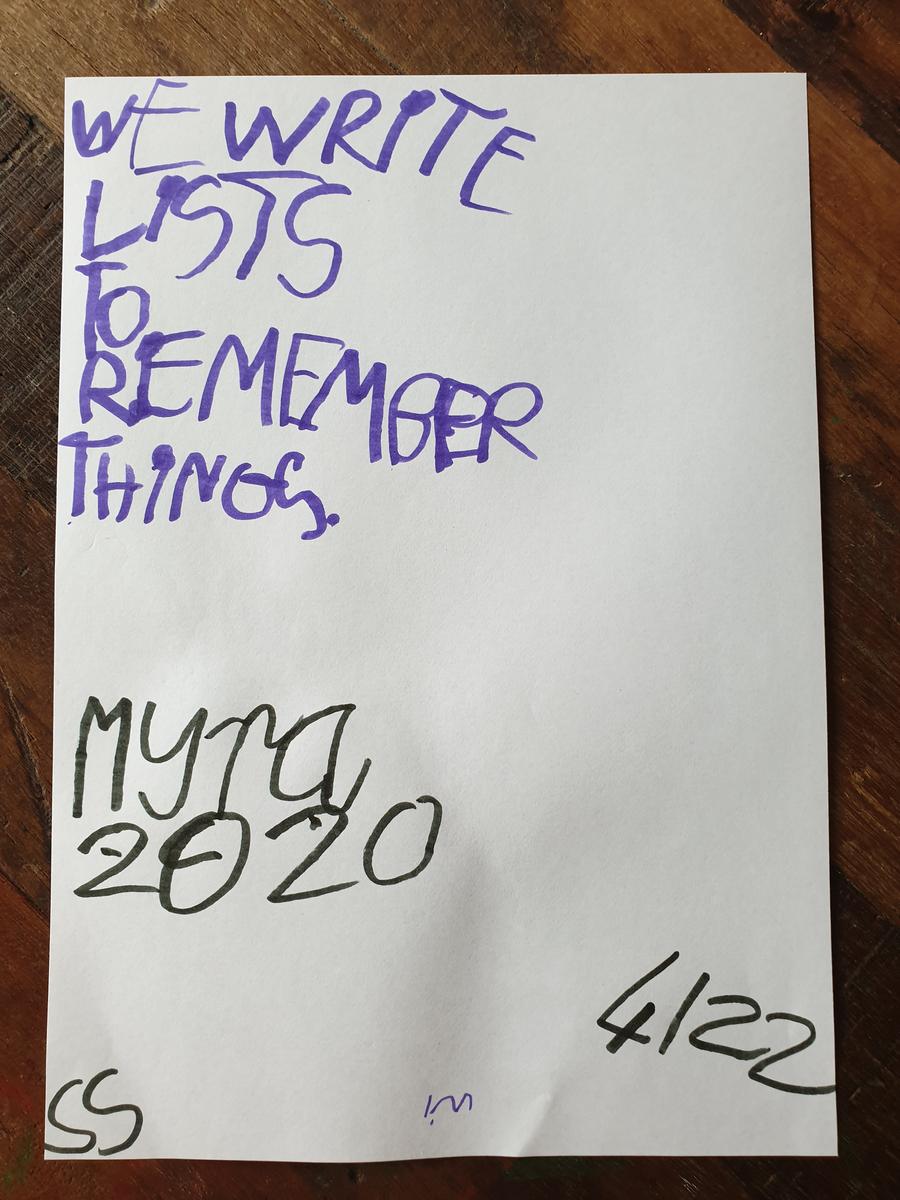 WE WRITE
LISTS
TO
REMEMBER
THINGS.
Myra
2020
4/22
SS